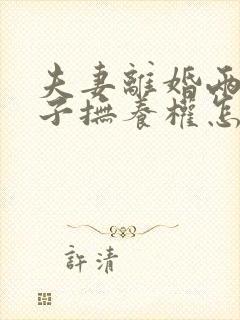 夫妻離婚兩
子撫養權怎
許清